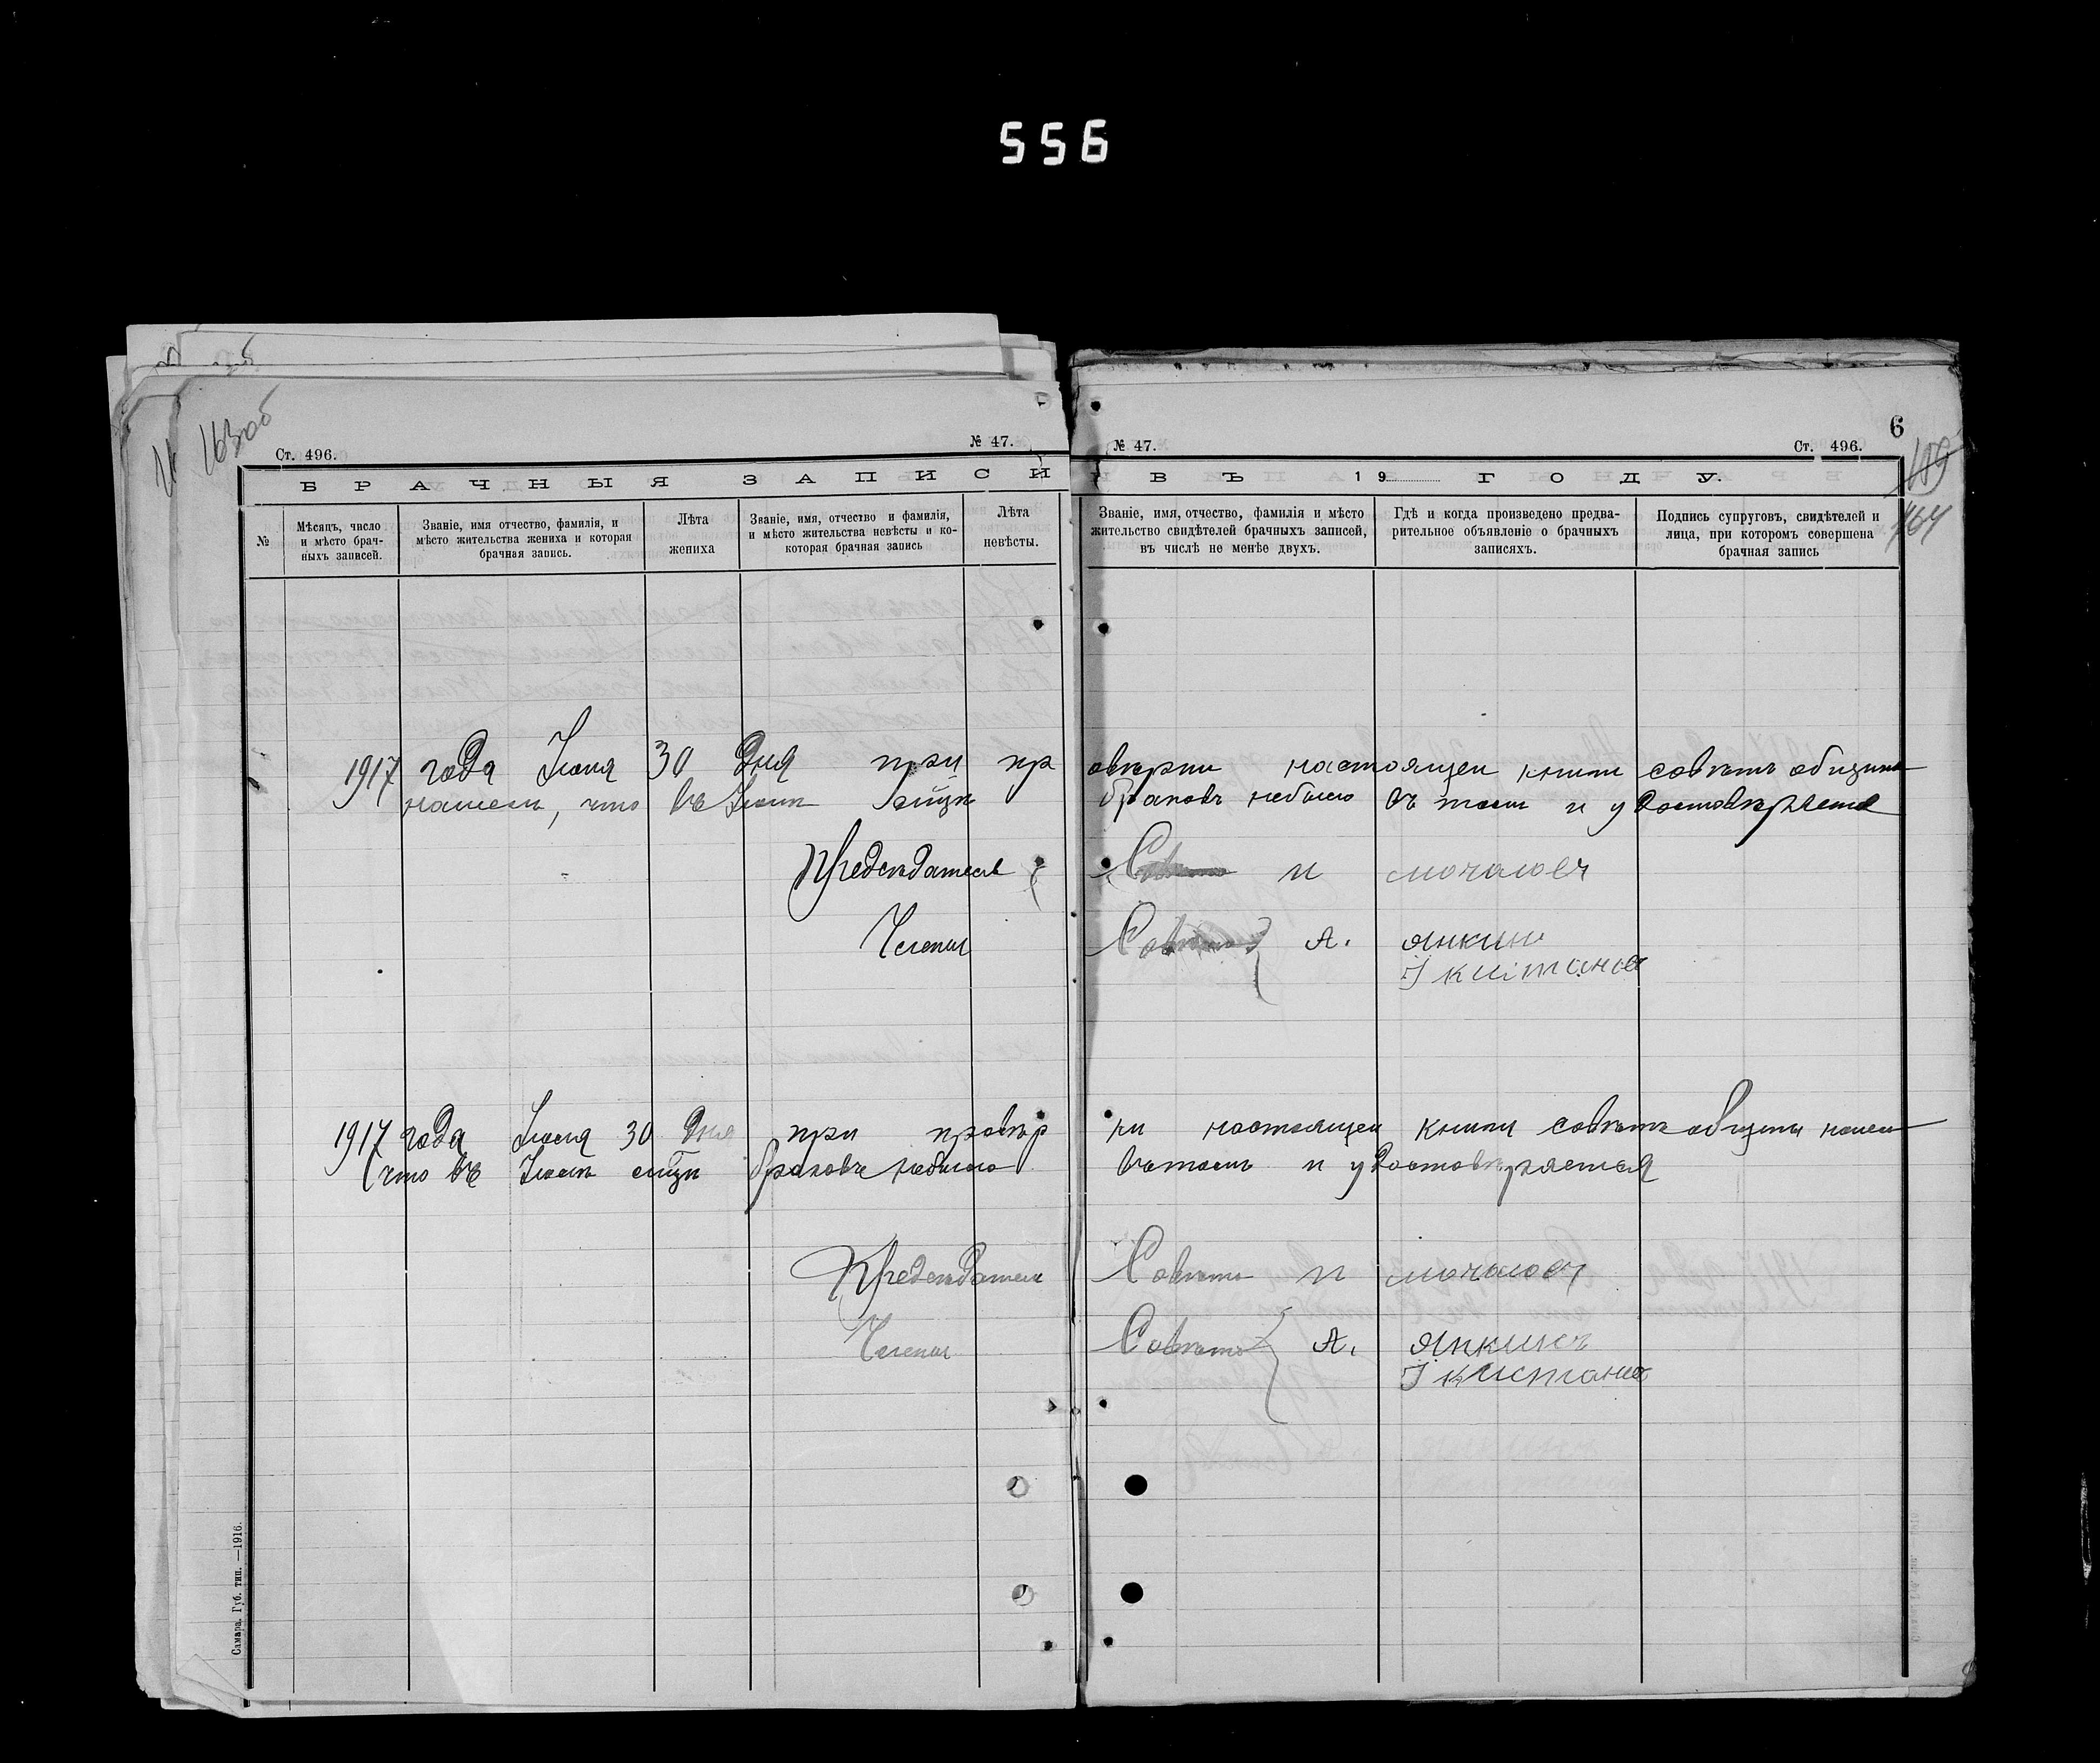 556
163об
Ст. 496.
№ 47.
№ 47.
Ст. 496.
6
159
164
БРАЧНЫЯ ЗАПИСИ ВЪ 19 ГОДУ.
№
Мѣсяцъ, число
и мѣсто брач-
ныхъ записей.
Званіе, имя отчество, фамилія, и
мѣсто жительства жениха и которая
брачная запись.
Лѣта
жениха
Званіе, имя, отчество и фамилія,
и мѣсто жительства невѣсты и ко-
которая брачная запись
Лѣта
невѣсты.
Званіе, имя, отчество, фамилія и мѣсто
жительство свидѣтелей брачныхъ записей,
въ числѣ не менѣе двухъ.
Гдѣ и когда произведено предва-
рительное объявленіе о брачныхъ
записяхъ.
Подпись супруговъ, свидѣтелей и
лица, при которомъ совершена
брачная запись
1917 года Іюня 30 дня при пр овѣрки настоящей книги совѣтъ общины
нашелъ, что въ Іюнѣ браковъ небыло въ томъ и удостовѣряетъ
Предсѣдатель Совѣта П мочаловъ
Члены Совѣта А. Янкинъ
1917 года Іюля 30 дня при провѣр ки настоящей книги совѣтъ общины нашелъ
что въ Іюлѣ браковъ небыло въ томъ и удостовѣряется
Предсѣдатель Совѣта П мочаловъ
Члены Совѣта А. Янкинъ
Самара. Губ. тип. —1916.